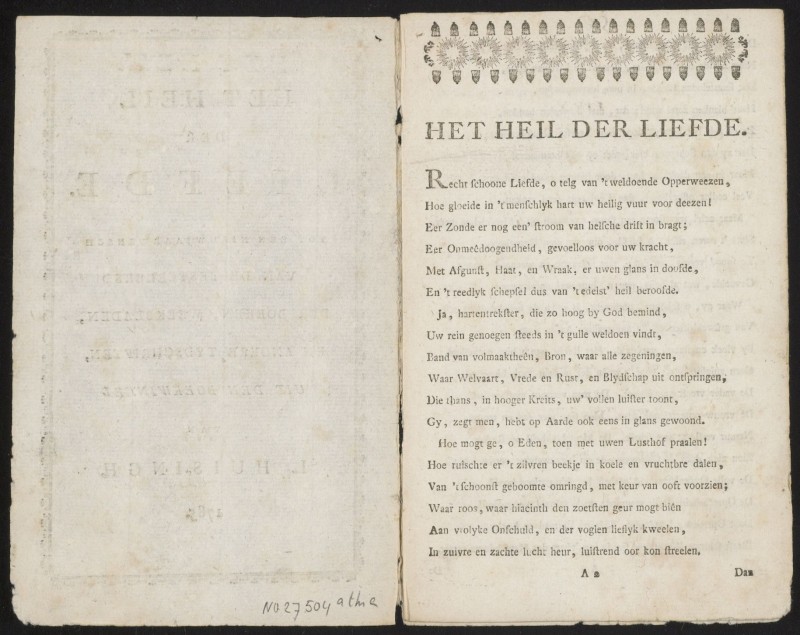 No 27504 athe
HET HEIL DER LIEFDE.
Recht ſchoone Liefde, o telg van 't weldoende Opperweezen,
Hoe gloeide in 't menſchlyk hart uw heilig vuur voor deezen!
Eer Zonde er nog een' ſtroom van helſche drift in bragt;
Eer Onmeêdoogendheid, gevoelloos voor uw kracht,
Met Afgunſt, Haat, en Wraak, er uwen glans in doofde,
En 't reedlyk ſchepſel dus van 't edelst' heil beroofde.
Ja, hartentrekſter, die zo hoog by God bemind,
Uw rein genoegen ſteeds in 't gulle weldoen vindt,
Band van volmaaktheên, Bron, waar alle zegeningen,
Waar Welvaart, Vrede en Rust, en Blydſchap uit ontſpringen;
Die thans, in hooger Kreits, uw' vollen luiſter toont,
Gy, zegt men, hebt op Aarde ook eens in glans gewoond.
Hoe mogt ge, o Eden, toen met uwen Lusthof praalen!
Hoe ruiſchte er 't zilvren beekje in koele en vruchtbre dalen,
Van 't ſchoonſt geboomte omringd, met keur van ooft voorzien;
Waar roos, waar hiacinth den zoetſten geur mogt biên
Aan vrolyke Onſchuld, en der voglen lieflyk kweelen,
In zuivre en zachte lucht heur, luiſtrend oor kon ſtreelen.
A 2 Dan